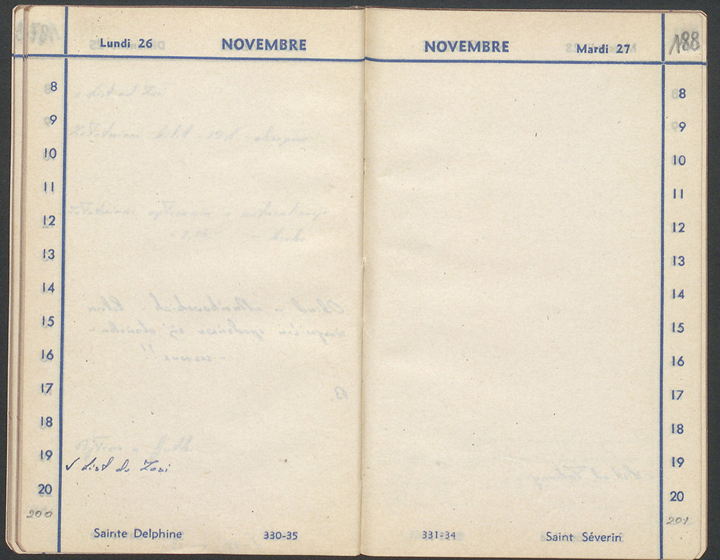 Lundi 26 NOVEMBRE
8
9
10
11
12
13
14
15
16
17
18
19
√ list do Zosi
20
200
Sainte Delphine 330-35
NOVEMBRE Mardi 27
188
8
9
10
11
12
13
14
15
16
17
18
19
20
201
331-34 Saint Séverin